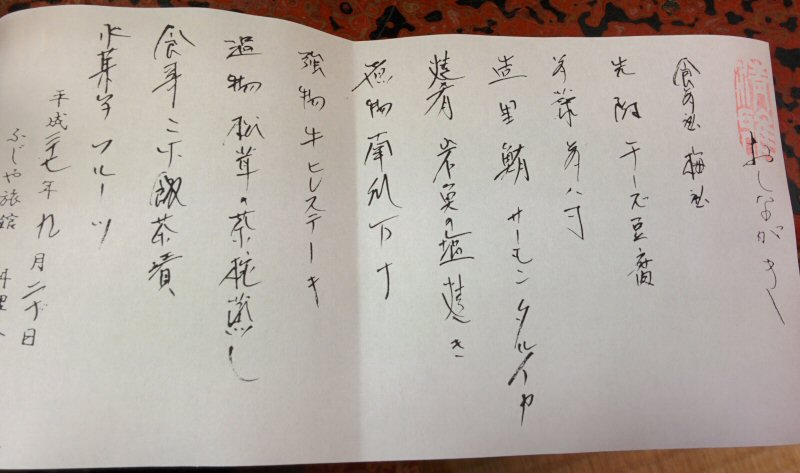 おしながき
食前酒 梅酒
先附 チーズ豆腐
前菜 前八寸
造里 鮪 サーモン
焼肴 岩魚の塩焼き
煮物 南瓜
強物 牛ヒレステーキ
温物 松茸の茶碗蒸し
食事 ミニ飯 茶漬
水菓子 フルーツ
平成二十七年九月二十日
ふじや旅館 料理